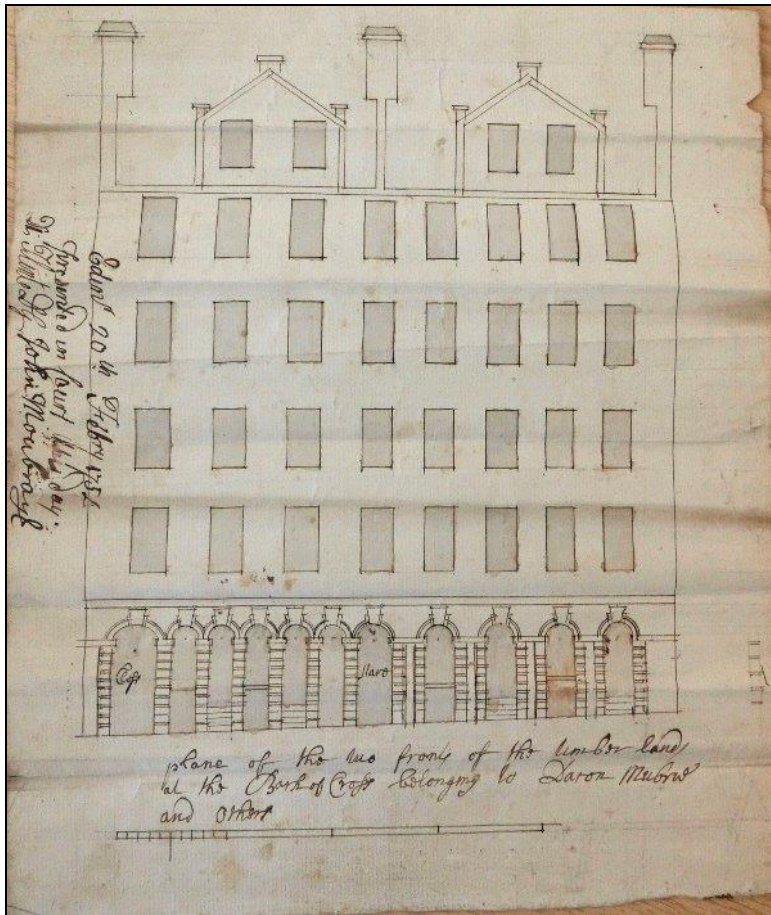 Edinr 20th Febry 1752
Presented in Court this day.
John Moubray
Closs
Stare
plane of the two fronts of the timber land
at the Back of Cross belonging to Dacon Mubrie
and others